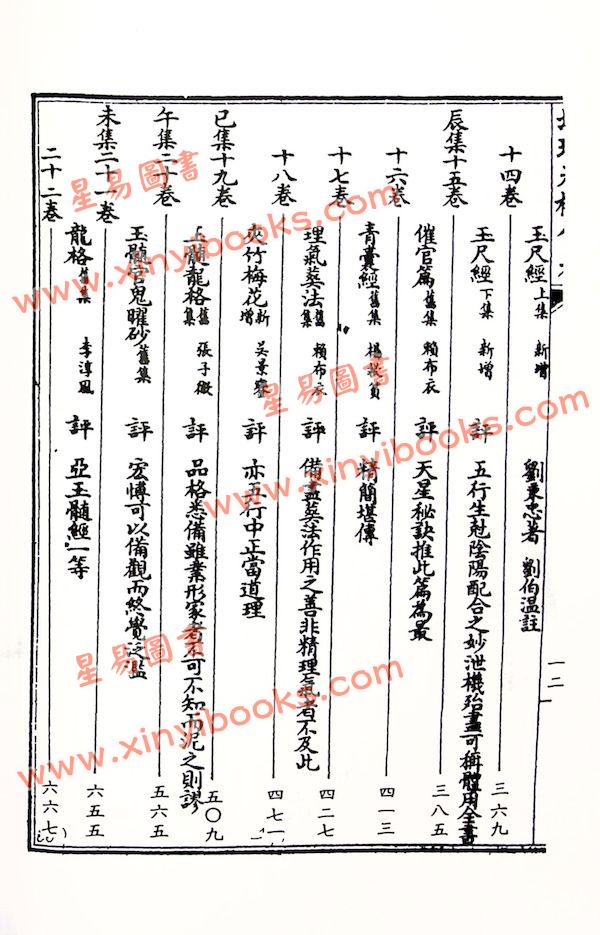 十四卷 玉尺經 上集 新增 劉秉忠著 劉伯温註 三六九
辰集十五卷 玉尺經 下集 新增 評 五行生尅陰陽配合之妙泄機殆盡可稱體用全書 三八五
十六卷 催官篇 舊集 賴布衣 評 天星秘訣推此篇為最 四一三
十七卷 青囊經 舊集 楊救貧 評 精簡堪傳 四二七
十八卷 理氣葬法 舊集 賴布衣 評 備盡葬法作用之善非精理氣者不及此 四七一
巳集十九卷 夾竹梅花 新增 吳景鸞 評 亦五行中正當道理 五〇九
午集二十卷 玉髓龍格 舊集 張子微 評 品格悉備雖業形家者不可不知而泥之則謬 五六五
未集二十一卷 玉髓官鬼曜砂 舊集 評 宏博可以備觀而終覺泛濫 六五五
二十二卷 龍格 舊集 李淳風 評 亞玉髓經一等 六六七
一二
星易圖書
www.xinyibooks.com
星易圖書
www.xinyibooks.com
星易圖書
www.xinyibooks.com